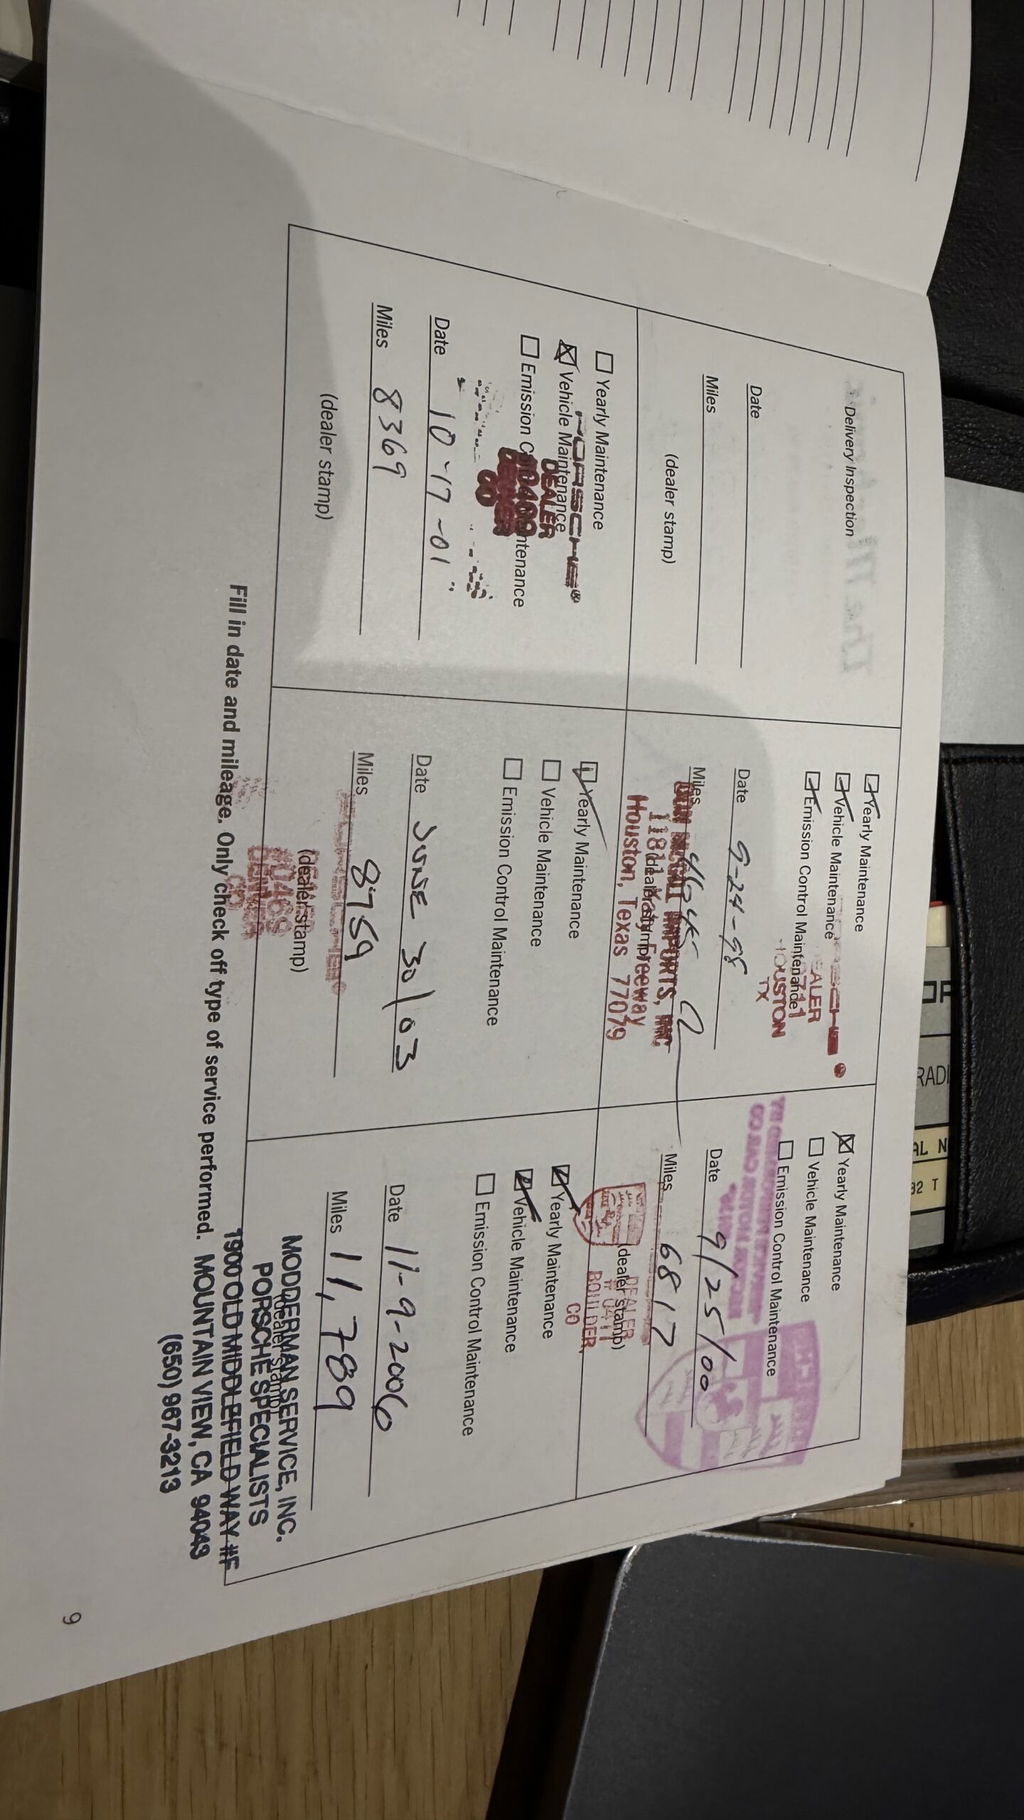 Delivery Inspection
Date
Miles
(dealer stamp)
Yearly Maintenance
Vehicle Maintenance
Emission Control Maintenance
DEALER
HOUSTON
TX
Date 5-24-98
Miles
IMPORTS, INC.
11811 Katy Freeway
(dealer stamp)
Houston, Texas 77079
Yearly Maintenance
Vehicle Maintenance
Emission Control Maintenance
Date 9/25/00
Miles 6817
(dealer stamp)
DEALER
BOULDER,
CO
Yearly Maintenance
Vehicle Maintenance
Emission Control Maintenance
PORSCHE®
DEALER
10469
DENVER
CO
Date 10-17-01
Miles 8369
(dealer stamp)
Yearly Maintenance
Vehicle Maintenance
Emission Control Maintenance
Date JUNE 30/03
Miles 8759
(dealer stamp)
10469
Yearly Maintenance
Vehicle Maintenance
Emission Control Maintenance
Date 11-9-2006
Miles 11,789
(dealer stamp)
MODDERMAN SERVICE, INC.
PORSCHE SPECIALISTS
1900 OLD MIDDLEFIELD WAY #F
MOUNTAIN VIEW, CA 94043
(650) 967-3213
Fill in date and mileage. Only check off type of service performed.
9
RADI
AL N
32 T